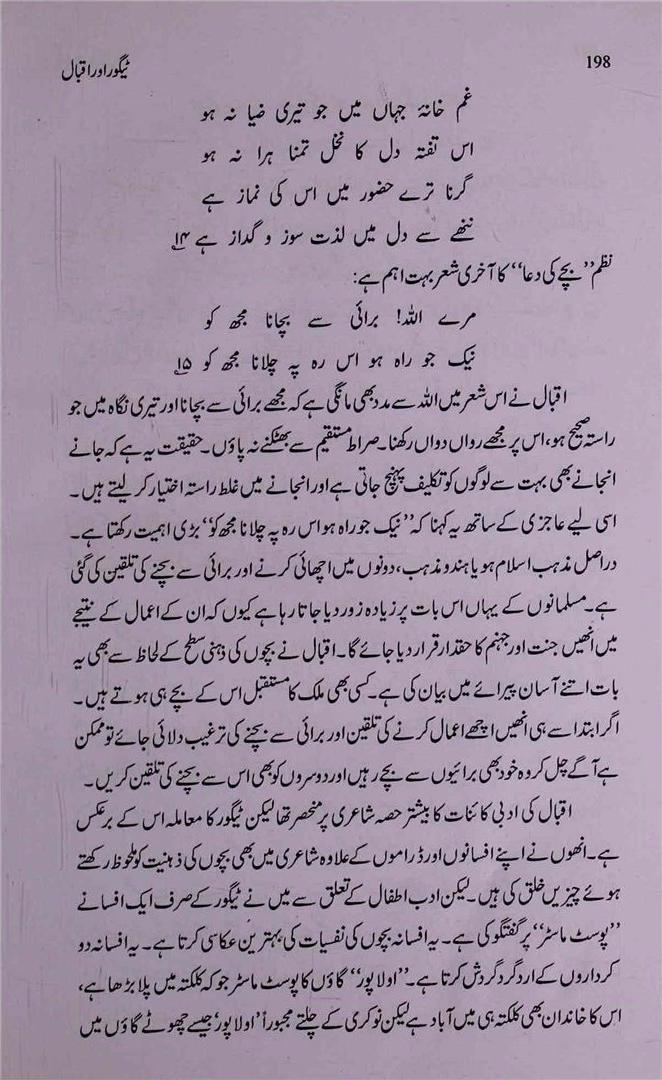 198
ٹیگور اور اقبال
غم خانۂ جہاں میں جو تیری ضیا نہ ہو
اس تفتہ دل کا نخل تمنا ہرا نہ ہو
گرنا ترے حضور میں اس کی نماز ہے
ننھے سے دل میں لذت سوز و گداز ہے ۱۴؂
نظم ’’بچے کی دعا‘‘ کا آخری شعر بہت اہم ہے:
مرے اللہ! برائی سے بچانا مجھ کو
نیک جو راہ ہو اس رہ پہ چلانا مجھ کو ۱۵؂
اقبال نے اس شعر میں اللہ سے مدد بھی مانگی ہے کہ مجھے برائی سے بچانا اور تیری نگاہ میں جو
راستہ صحیح ہو، اس پر مجھے رواں دواں رکھنا۔ صراط مستقیم سے بھٹکنے نہ پاؤں۔ حقیقت یہ ہے کہ جانے
انجانے بھی بہت سے لوگوں کو تکلیف پہنچ جاتی ہے اور انجانے میں غلط راستہ اختیار کر لیتے ہیں۔
اسی لیے عاجزی کے ساتھ یہ کہنا کہ ’’نیک جو راہ ہو اس رہ پہ چلانا مجھ کو‘‘ بڑی اہمیت رکھتا ہے۔
دراصل مذہب اسلام ہو یا ہندو مذہب، دونوں میں اچھائی کرنے اور برائی سے بچنے کی تلقین کی گئی
ہے۔ مسلمانوں کے یہاں اس بات پر زیادہ زور دیا جاتا رہا ہے کیوں کہ ان کے اعمال کے نتیجے
میں انھیں جنت اور جہنم کا حقدار قرار دیا جائے گا۔ اقبال نے بچوں کی ذہنی سطح کے لحاظ سے بھی یہ
بات اتنے آسان پیرائے میں بیان کی ہے۔ کسی بھی ملک کا مستقبل اس کے بچے ہی ہوتے ہیں۔
اگر ابتدا سے ہی انھیں اچھے اعمال کرنے کی تلقین اور برائی سے بچنے کی ترغیب دلائی جائے تو ممکن
ہے آگے چل کر وہ خود بھی برائیوں سے بچے رہیں اور دوسروں کو بھی اس سے بچنے کی تلقین کریں۔
اقبال کی ادبی کائنات کا بیشتر حصہ شاعری پر منحصر تھا لیکن ٹیگور کا معاملہ اس کے برعکس
ہے۔ انھوں نے اپنے افسانوں اور ڈراموں کے علاوہ شاعری میں بھی بچوں کی ذہنیت کو ملحوظ رکھتے
ہوئے چیزیں خلق کی ہیں۔ لیکن ادب اطفال کے تعلق سے میں نے ٹیگور کے صرف ایک افسانے
’’پوسٹ ماسٹر‘‘ پر گفتگو کی ہے۔ یہ افسانہ بچوں کی نفسیات کی بہترین عکاسی کرتا ہے۔ یہ افسانہ دو
کرداروں کے اردگرد گردش کرتا ہے۔ ’’اولا پور‘‘ گاؤں کا پوسٹ ماسٹر جو کہ کلکتہ میں پلا بڑھا ہے،
اس کا خاندان بھی کلکتہ ہی میں آباد ہے لیکن نوکری کے چلتے مجبوراً ’اولا پور‘ جیسے چھوٹے گاؤں میں